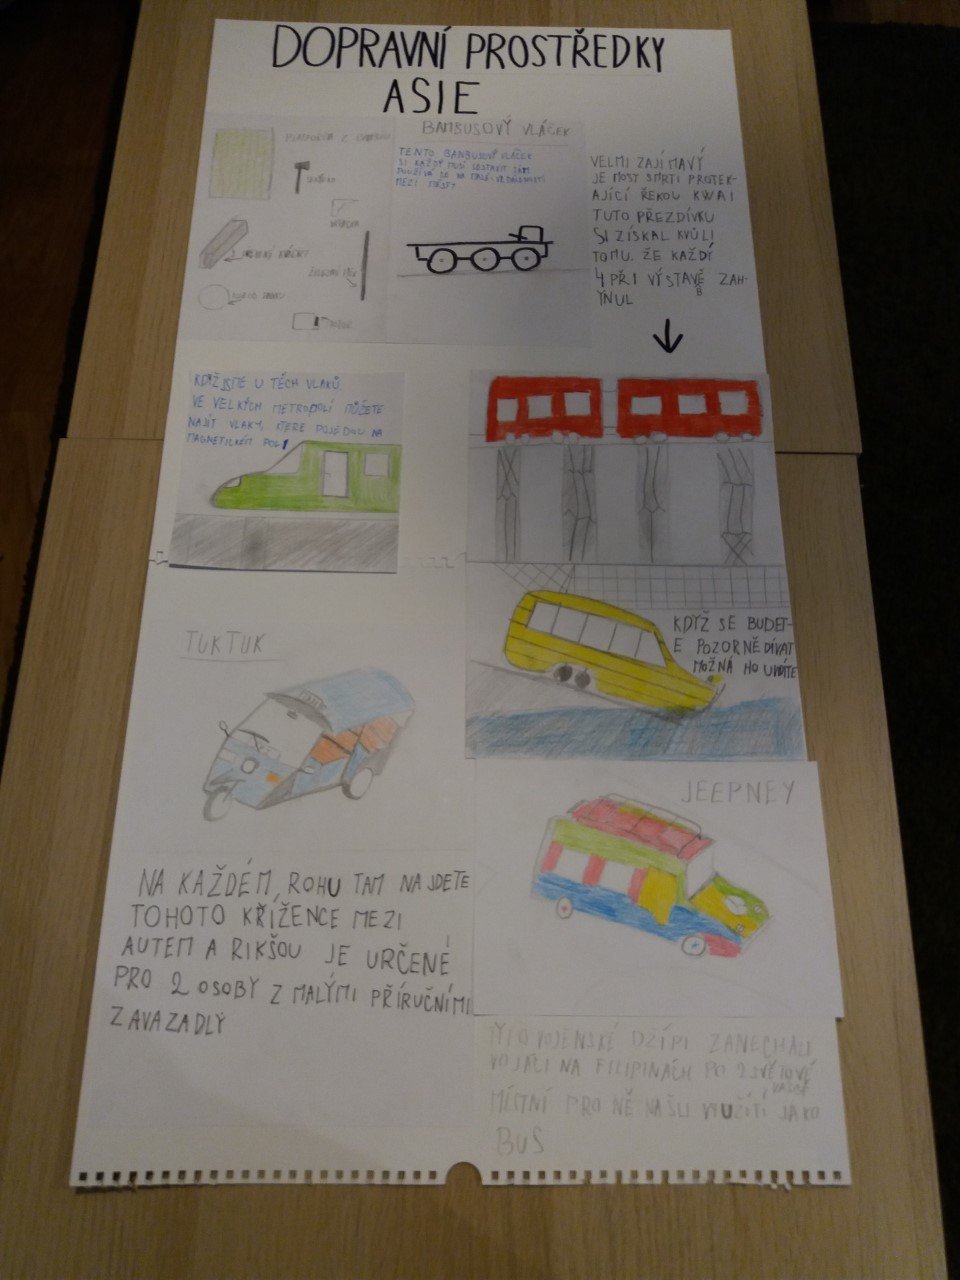 DOPRAVNÍ PROSTŘEDKY
ASIE
PLATFORMA Z BAMBUSU
BAMBUSOVÝ VLÁČEK
TENTO BANBUSOVÝ VLÁČEK
SI KAŽDÝ MUSÍ SESTAVIT SÁM
POUŽÍVÁ SE NA MALÉ VZDÁLENOSTI
MEZI MĚSTY
VELMI ZAJÍMAVÝ
JE MOST SMRTI PROTEK-
AJÍCÍ ŘEKOU KWAI
TUTO PŘEZDÍVKU
SI ZÍSKAL KVŮLI
TOMU, ŽE KAŽDÝ
4 PŘI VÝSTAVĚ ZAH-
B
YNUL
KDYŽ JSME U TĚCH VLAKŮ
VE VELKÝCH METROPOLÍ MŮŽETE
NAJÍT VLAKY, KTERÉ POJEDOU NA
MAGNETICKÉM POLI
KDYŽ SE BUDET-
E POZORNĚ DÍVAT
MOŽNÁ HO UVIDÍTE
TUKTUK
NA KAŽDÉM ROHU TAM NAJDETE
TOHOTO KŘÍŽENCE MEZI
AUTEM A RIKŠOU JE URČENÉ
PRO 2 OSOBY Z MALÝMI PŘÍRUČNÍMI
ZAVAZADLY
JEEPNEY
TYTO VOJENSKÉ DŽÍPI ZANECHALI
VOJÁCI NA FILIPINÁCH PO 2 SVĚTOVÉ
VÁLCE
MÍSTNÍ PRO NĚ NAŠLI VYUŽITÍ JAKO
BUS